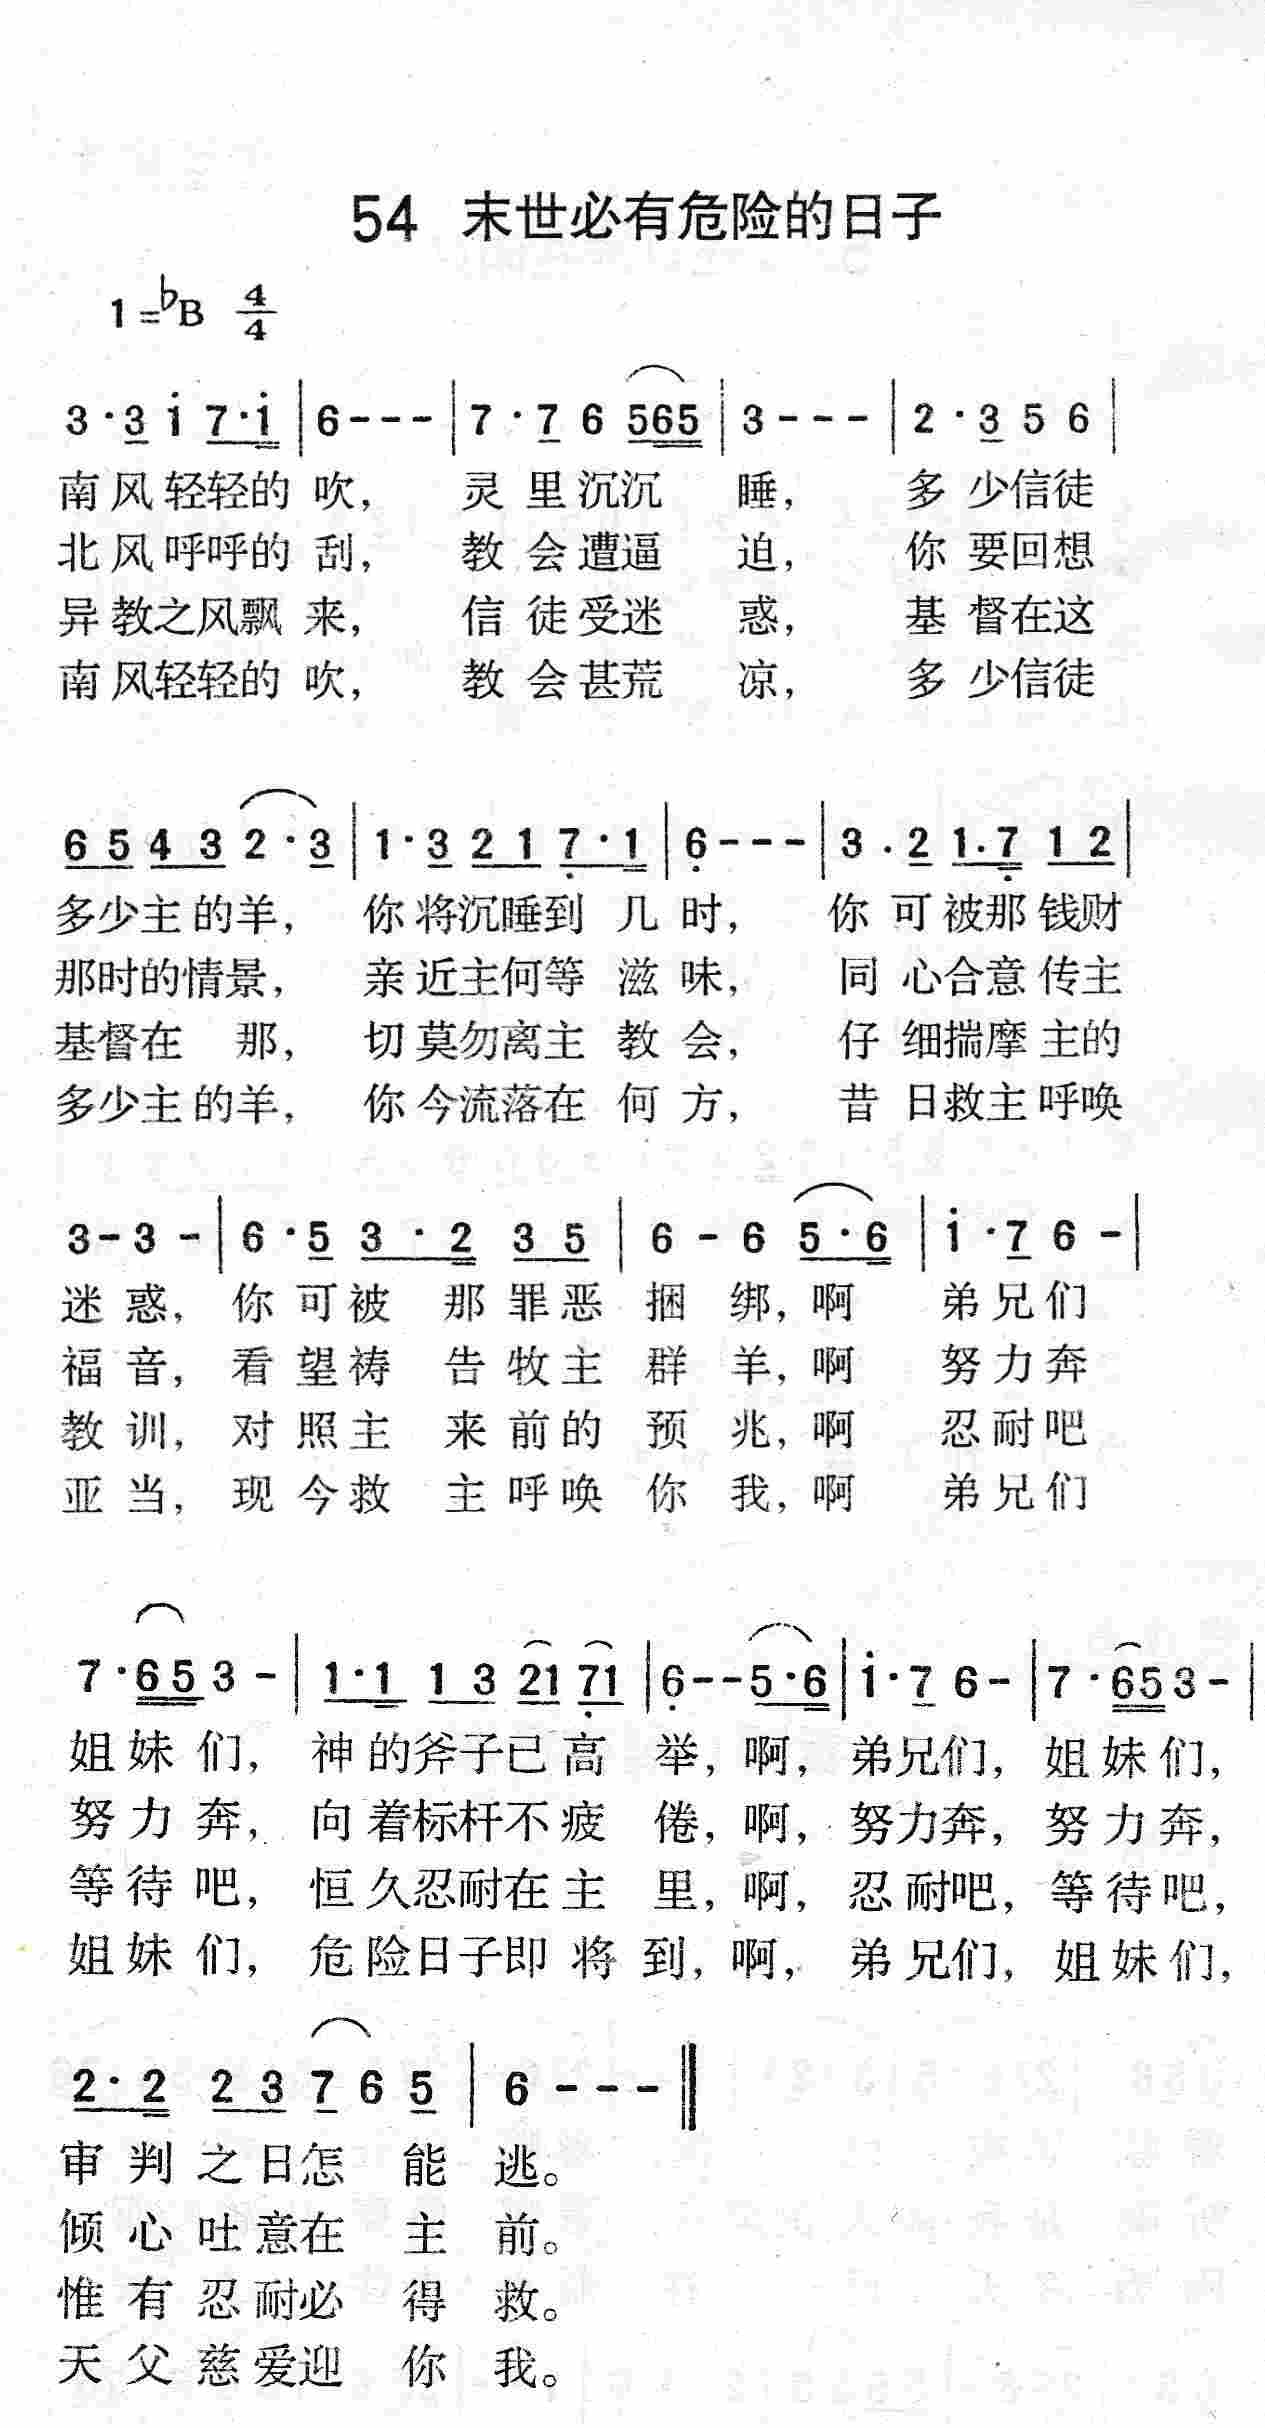 54 末世必有危险的日子
1=♭B 4/4
3·3 i 7·i | 6--- | 7·7 6 565 | 3--- | 2·3 5 6 |
南风轻轻的 吹， 灵里沉沉 睡， 多少信徒
北风呼呼的 刮， 教会遭逼 迫， 你要回想
异教之风飘 来， 信徒受迷 惑， 基督在这
南风轻轻的 吹， 教会甚荒 凉， 多少信徒
65 43 2·3 | 1·3 21 7̣·1 | 6̣--- | 3·2 1·7̣ 12 |
多少主的羊， 你将沉睡到 几 时， 你可被那钱财
那时的情景， 亲近主何等 滋 味， 同心合意传主
基督在 那， 切莫勿离主 教 会， 仔细揣摩主的
多少主的羊， 你今流落在 何 方， 昔日救主呼唤
3-3- | 6·5 3·2 35 | 6-6 5·6 | i·7 6- |
迷惑， 你可被 那罪恶 捆 绑，啊 弟兄们
福音， 看望祷 告牧主 群 羊，啊 努力奔
教训， 对照主 来前的 预 兆，啊 忍耐吧
亚当， 现今救 主呼唤 你 我，啊 弟兄们
7·65 3- | 1·1 13 21 7̣1 | 6̣--5·6 | i·7 6- | 7·65 3- |
姐妹们， 神的斧子已高 举，啊， 弟兄们， 姐妹们，
努力奔， 向着标杆不疲 倦，啊， 努力奔， 努力奔，
等待吧， 恒久忍耐在主 里，啊， 忍耐吧， 等待吧，
姐妹们， 危险日子即将 到，啊， 弟兄们， 姐妹们，
2·2 23 7 6 5 | 6--- ‖
审判之日怎 能 逃。
倾心吐意在 主 前。
惟有忍耐必 得 救。
天父慈爱迎 你 我。